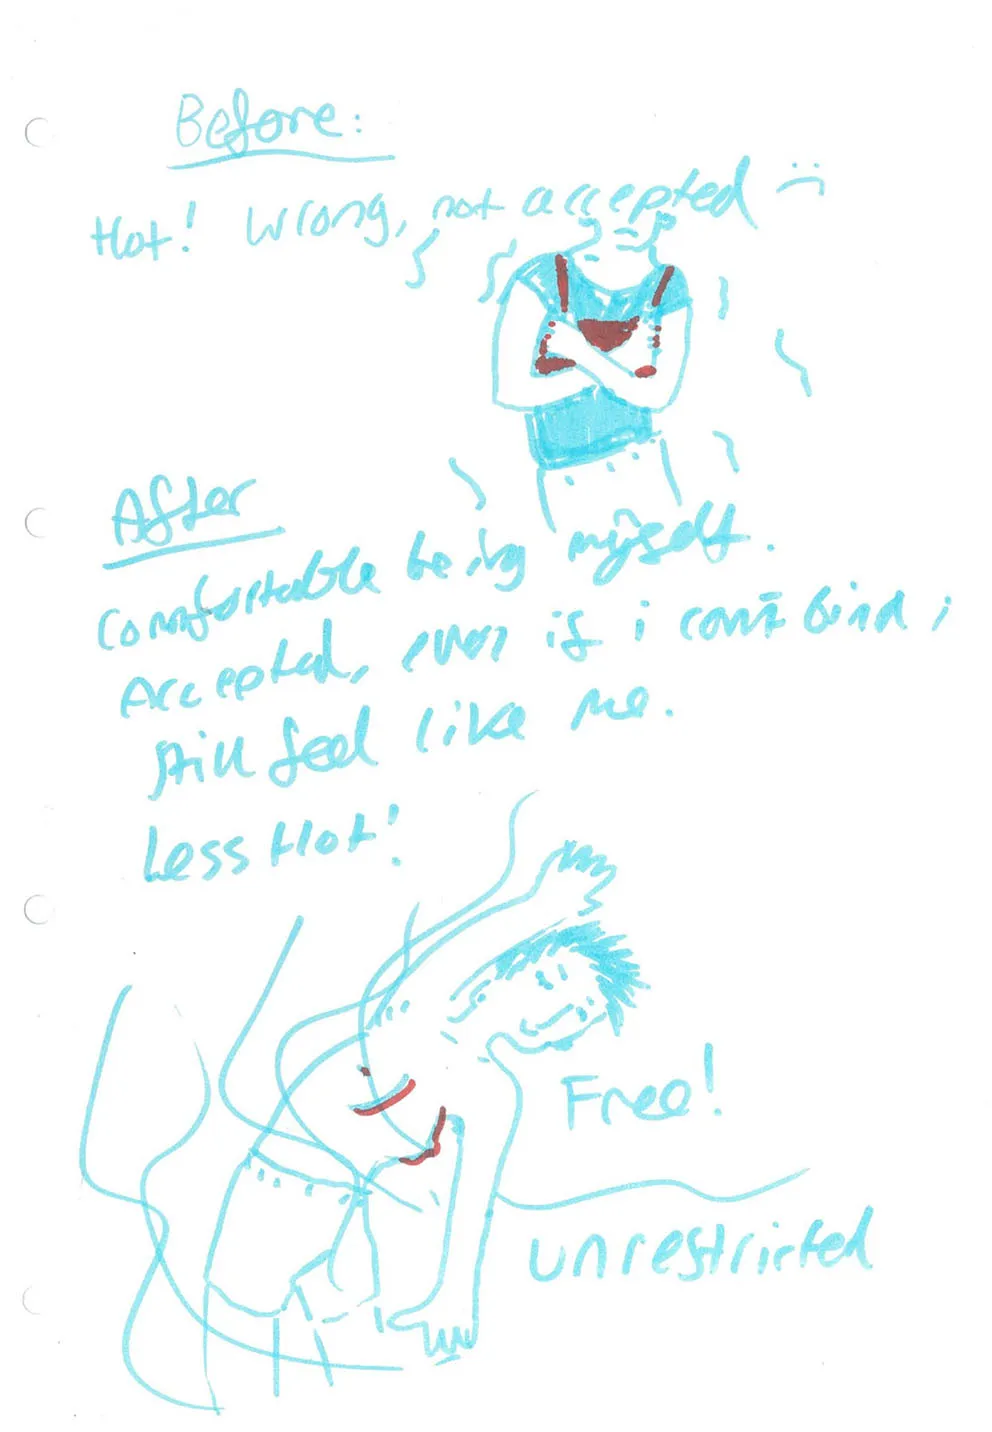 Before:
Hot! Wrong, not accepted :(
After
Comfortable being myself.
Accepted, even if i can't bind ;
still feel like me.
Less Hot!
Free!
unrestricted